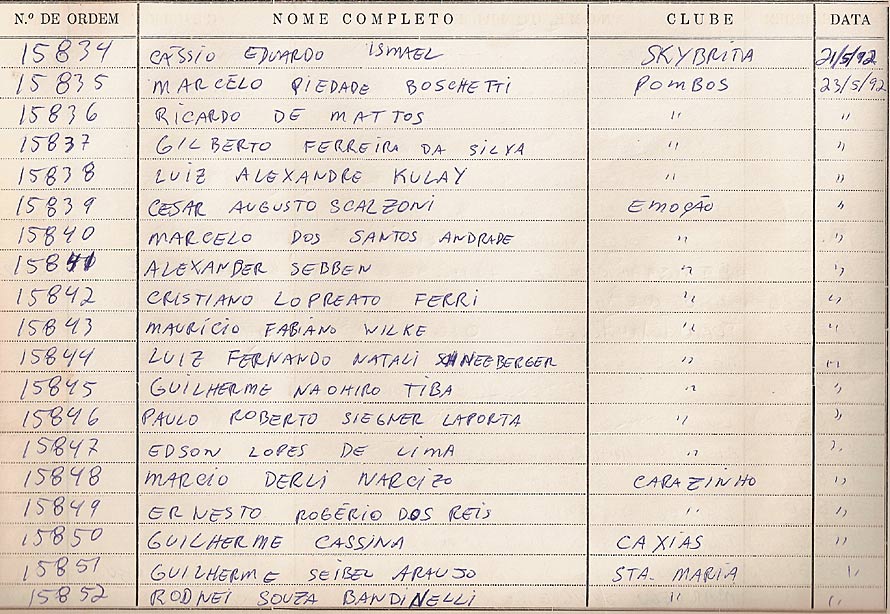 N.º DE ORDEM NOME COMPLETO CLUBE DATA
15834 CÁSSIO EDUARDO ISMAEL SKYBRITA 21/5/92
15835 MARCELO PIEDADE BOSCHETTI POMBOS 23/5/92
15836 RICARDO DE MATTOS " "
15837 GILBERTO FERREIRA DA SILVA " "
15838 LUIZ ALEXANDRE KULAY " "
15839 CESAR AUGUSTO SCALZONI EMOÇÃO "
15840 MARCELO DOS SANTOS ANDRADE " "
15841 ALEXANDER SEBBEN " "
15842 CRISTIANO LOPREATO FERRI " "
15843 MAURÍCIO FABIANO WILKE " "
15844 LUIZ FERNANDO NATALI SCHNEEBERGER " "
15845 GUILHERME NAOHIRO TIBA " "
15846 PAULO ROBERTO SIEGNER LAPORTA " "
15847 EDSON LOPES DE LIMA " "
15848 MARCIO DERLI NARCIZO CARAZINHO "
15849 ERNESTO ROGÉRIO DOS REIS " "
15850 GUILHERME CASSINA CAXIAS "
15851 GUILHERME SEIBEL ARAUJO STA. MARIA "
15852 RODNEI SOUZA BANDINELLI " "